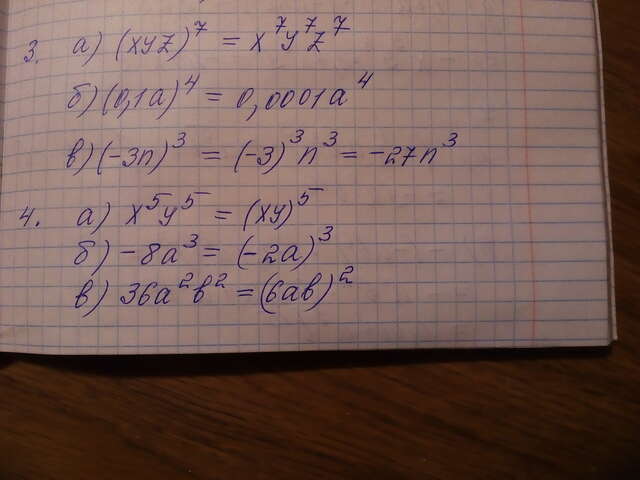 3. а) (xyz)⁷ = x⁷y⁷z⁷
б) (0,1a)⁴ = 0,0001a⁴
в) (-3n)³ = (-3)³n³ = -27n³
4. а) x⁵y⁵ = (xy)⁵
б) -8a³ = (-2a)³
в) 36a²b² = (6ab)²